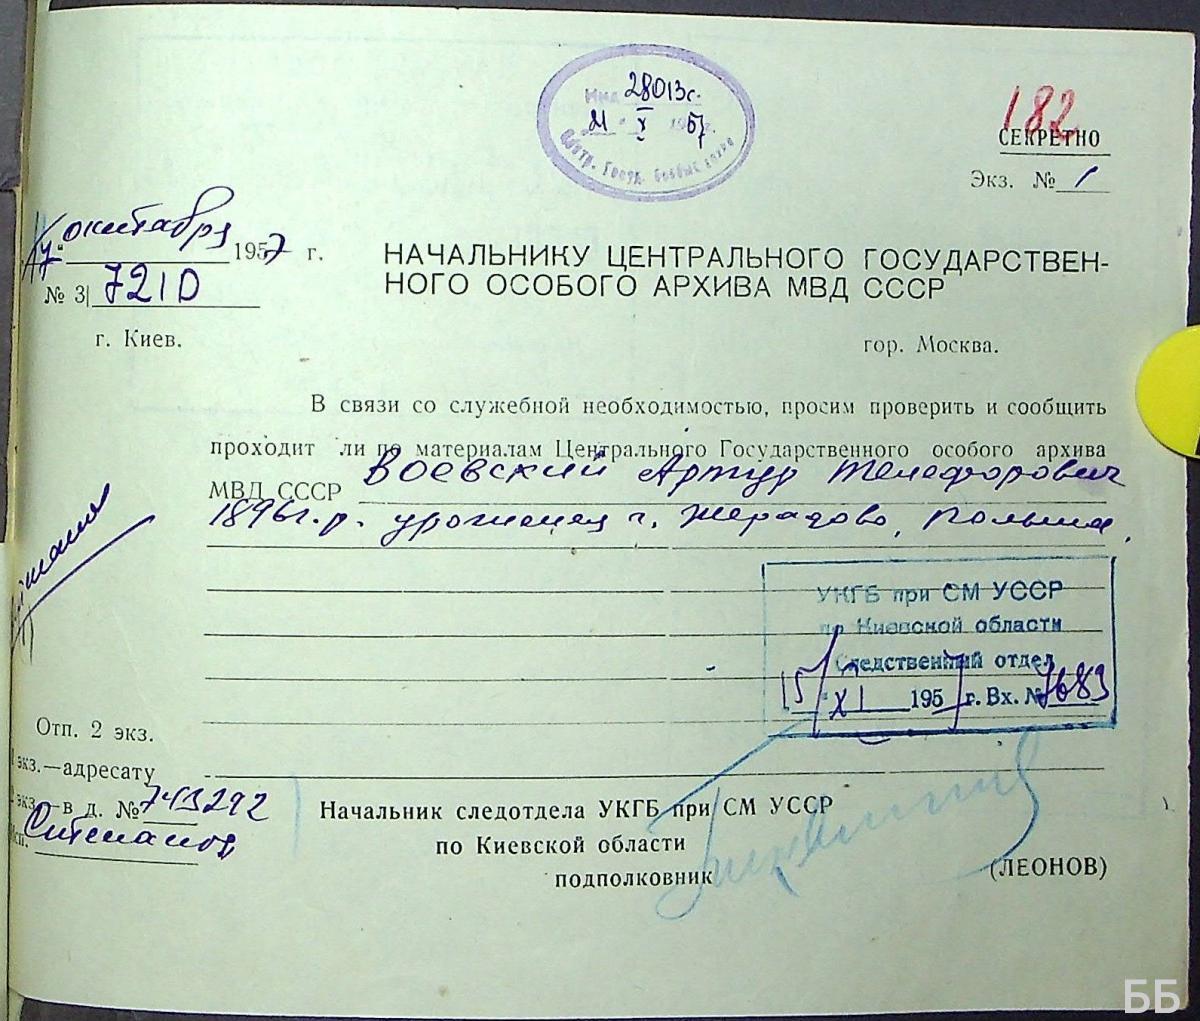 Вид 28013с.
21 X 1957 г.
Центр. Госуд. особый архив
182
СЕКРЕТНО
Экз. № 1
октября 1957 г.
№ 3| 7210
г. Киев.
НАЧАЛЬНИКУ ЦЕНТРАЛЬНОГО ГОСУДАРСТВЕН-
НОГО ОСОБОГО АРХИВА МВД СССР
гор. Москва.
В связи со служебной необходимостью, просим проверить и сообщить
проходит ли по материалам Центрального Государственного особого архива
МВД СССР Воевский Артур Телефорович
1896 г.р. уроженец г. Жерадово, Польша.
УКГБ при СМ УССР
по Киевской области
Следственный отдел
15/XI 1957 г. Вх. № 7683
Отп. 2 экз.
экз.—адресату
экз.—в д. № 743292
Степанов
Начальник следотдела УКГБ при СМ УССР
по Киевской области
подполковник
(ЛЕОНОВ)
ББ